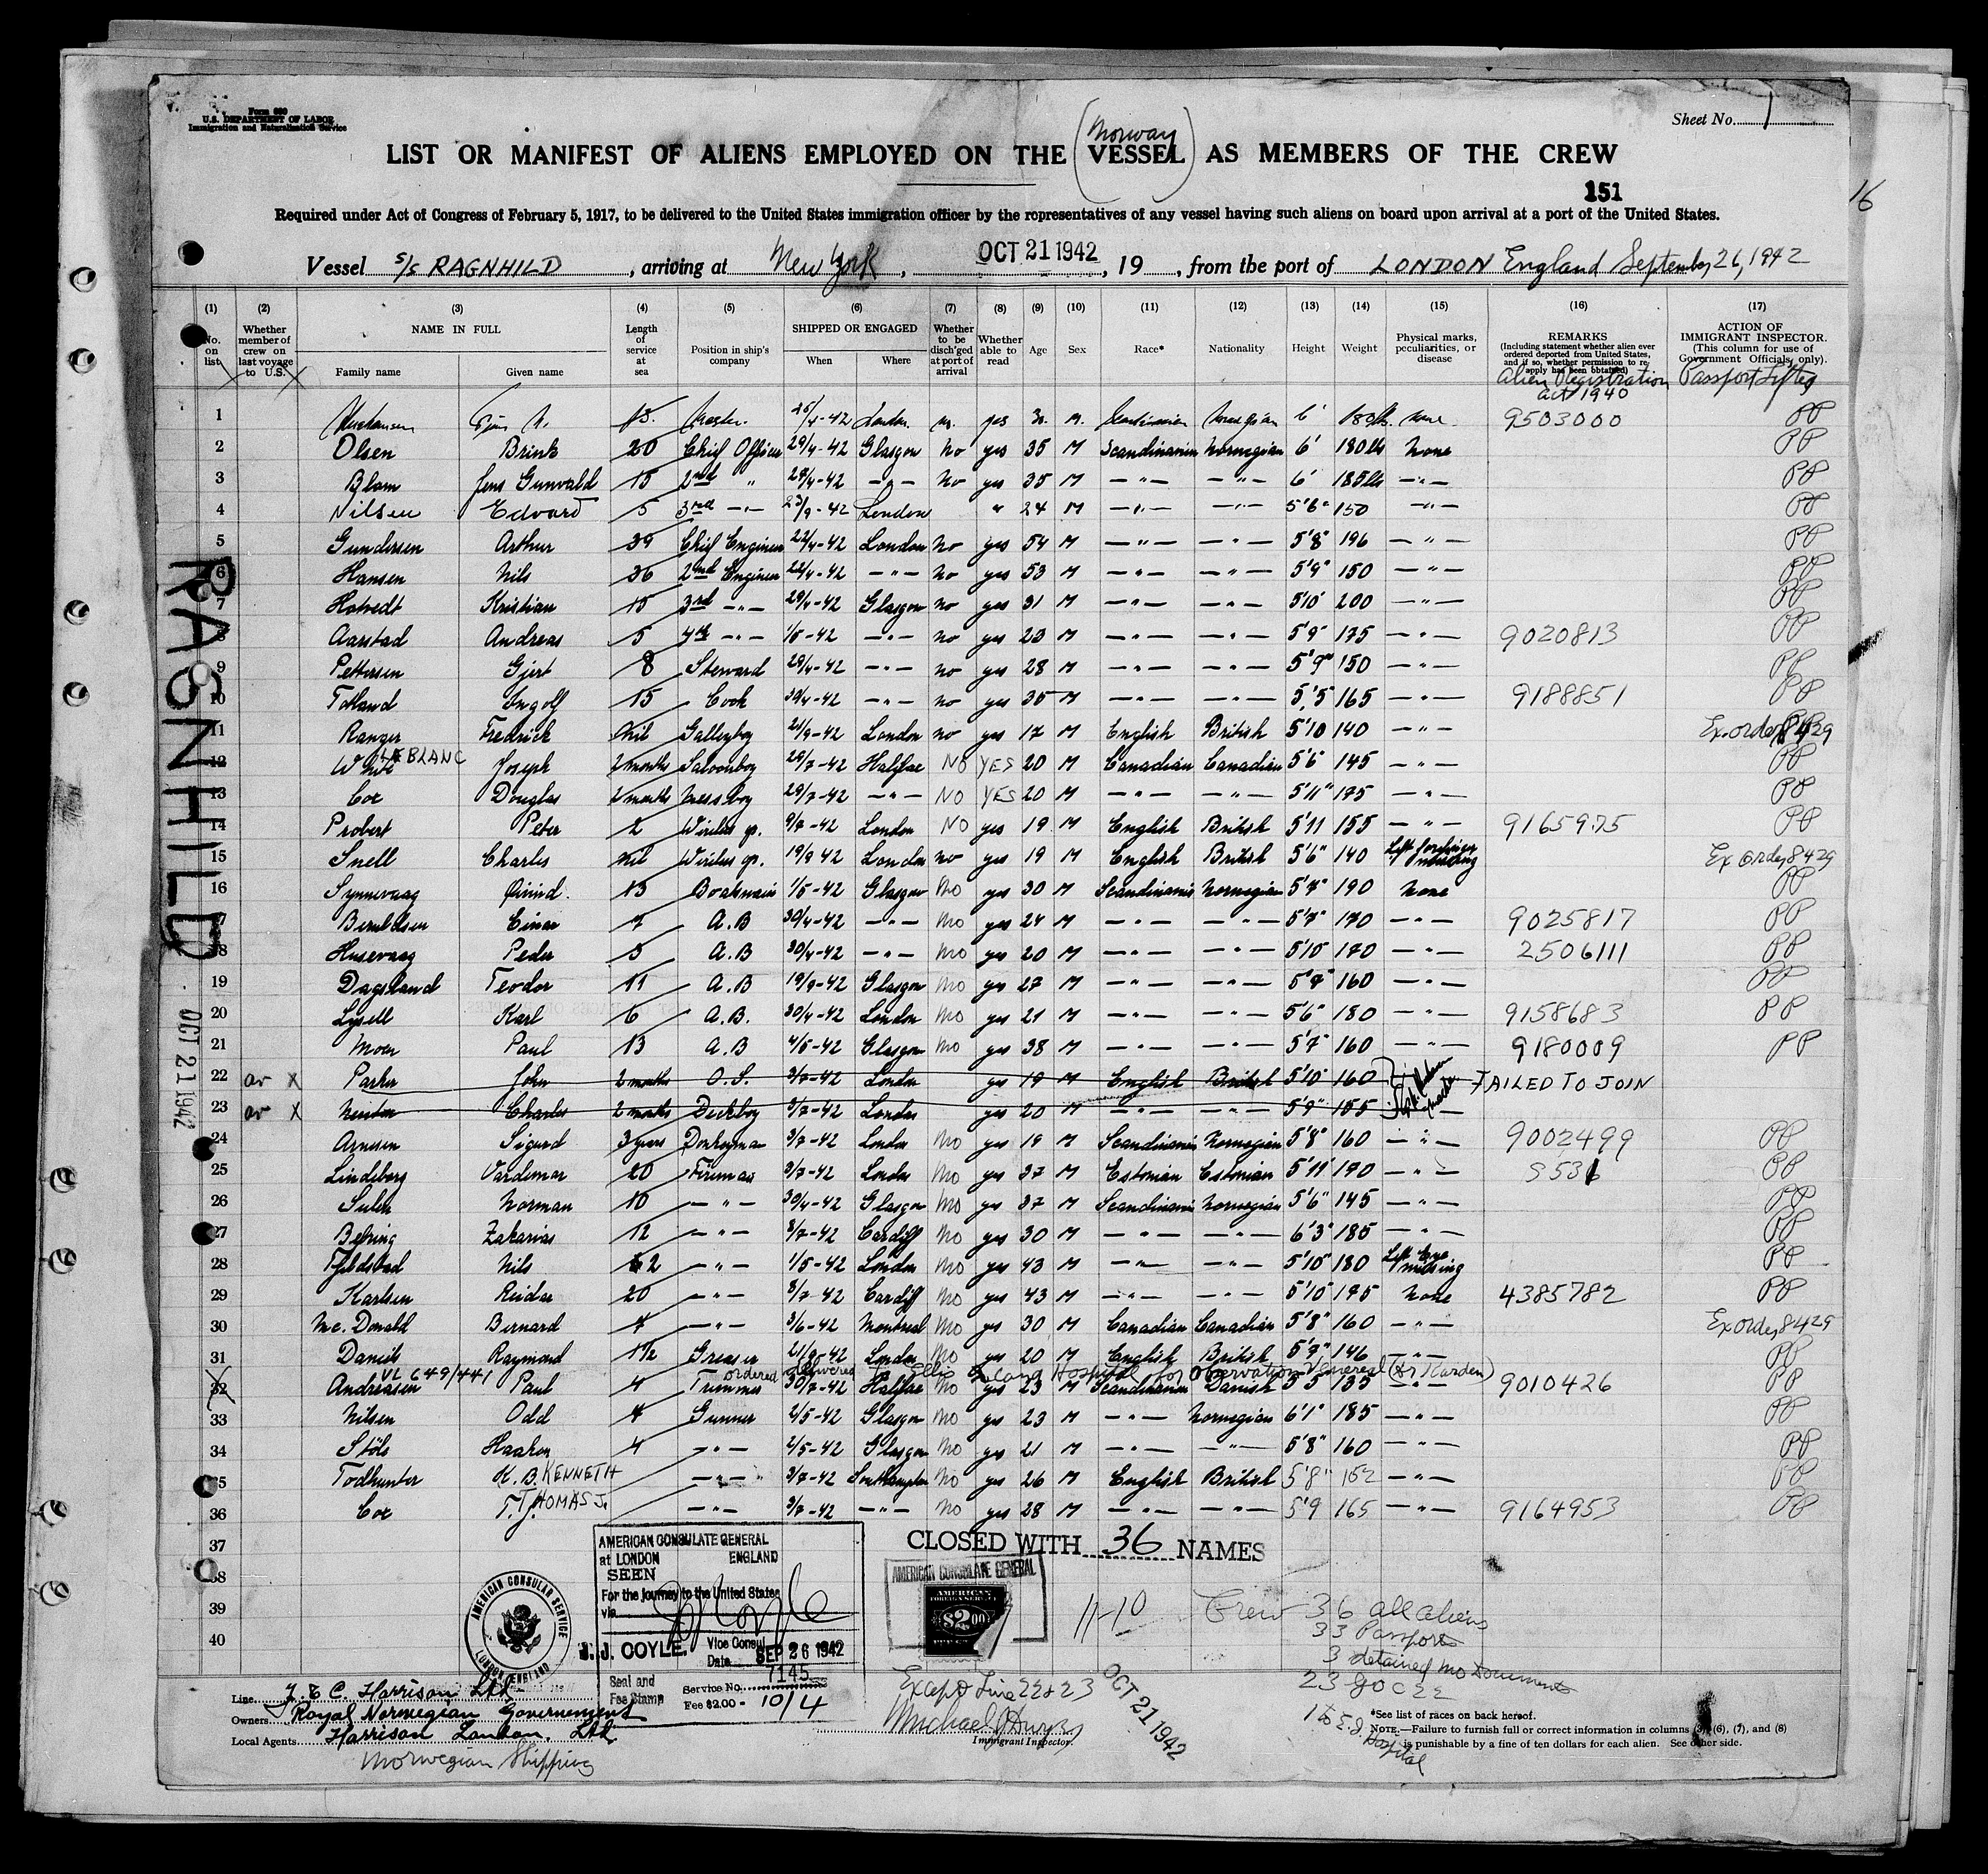 Form 680
U.S. DEPARTMENT OF LABOR
Immigration and Naturalization Service
Sheet No. 1
(Norway)
LIST OR MANIFEST OF ALIENS EMPLOYED ON THE VESSEL AS MEMBERS OF THE CREW
151
16
Required under Act of Congress of February 5, 1917, to be delivered to the United States immigration officer by the representatives of any vessel having such aliens on board upon arrival at a port of the United States.
Vessel S/S RAGNHILD, arriving at New York, OCT 21 1942, 19 , from the port of LONDON England September 26, 1942
(1) (2) (3) (4) (5) (6) (7) (8) (9) (10) (11) (12) (13) (14) (15) (16) (17)
No. on list
Whether member of crew on last voyage to U.S.
NAME IN FULL
Family name Given name
Length of service at sea
Position in ship's company
SHIPPED OR ENGAGED
When Where
Whether to be disch'ged at port of arrival
Whether able to read
Age
Sex
Race*
Nationality
Height
Weight
Physical marks, peculiarities, or disease
REMARKS
(Including statement whether alien ever ordered deported from United States, and if so, whether permission to reapply has been obtained)
Alien Registration Act 1940
ACTION OF IMMIGRANT INSPECTOR.
(This column for use of Government Officials, only).
Passport
1 15 Master 42 London yes 6' none 9503000 PP
2 Olsen Brink 20 Chief Officer 29/4-42 Glasgow No yes 35 M Scandinavian Norwegian 6' 180 lbs None PP
3 Blom Jens Gunvald 15 2nd " 29/4-42 -"- No yes 35 M -"- -"- 6' 185 lbs -"- PP
4 Nilsen Edvard 5 3rd -"- 23/9-42 London " 24 M -"- -"- 5'6" 150 -"- PP
5 Gundersen Arthur 39 Chief Engineer 22/4-42 London No yes 54 M -"- -"- 5'8" 196 -"- PP
6 Hansen Nils 36 2nd Engineer 22/4-42 -"- No yes 53 M -"- -"- 5'9" 150 -"- PP
7 Hotvedt Kristian 15 3rd -"- 29/4-42 Glasgow no yes 31 M -"- -"- 5'10" 200 -"- PP
8 Aarstad Andreas 5 4th -"- 1/5-42 -"- no yes 23 M -"- -"- 5'9" 175 -"- 9020813 PP
9 Pettersen Gjert 8 Steward 29/4-42 -"- no yes 28 M -"- -"- 5'9" 150 -"- PP
10 Totland Ingolf 15 Cook 30/4-42 -"- no yes 35 M -"- -"- 5'5" 165 -"- 9188851 PP
11 Ranger Fredrick nil Galleyboy 21/9-42 London no yes 17 M English British 5'10 140 -"- Ex order 8429
12 White LEBLANC Joseph 2 months Saloonboy 29/7-42 Halifax NO YES 20 M Canadian Canadian 5'6" 145 -"- PP
13 Coe Douglas 2 months Messboy 29/7-42 -"- NO YES 20 M -"- -"- 5'11" 175 -"- PP
14 Probert Peter 2 Wireless op. 9/7-42 London NO yes 19 M English British 5'11 155 -"- 9165975 PP
15 Snell Charles nil Wireless op. 19/9 42 London no yes 19 M English British 5'6" 140 Left forefinger missing Ex order 8429
16 Synnevaag Øivind 13 Boatswain 1/5-42 Glasgow No yes 30 M Scandinavian Norwegian 5'7" 190 None PP
17 Berntsen Einar 7 A.B 30/4-42 -"- No yes 24 M -"- -"- 5'7" 170 -"- 9025817 PP
18 Husevaag Peder 5 A.B 30/4-42 -"- No yes 20 M -"- -"- 5'10" 170 -"- 2506111 PP
19 Dagsland Teodor 11 A.B 19/9-42 Glasgow No yes 27 M -"- -"- 5'7" 160 -"- PP
20 Lysell Karl 6 A.B. 30/4-42 London No yes 21 M -"- -"- 5'6" 180 -"- 9158683 PP
21 Moen Paul 13 A.B 4/5-42 Glasgow No yes 38 M -"- -"- 5'7" 160 -"- 9180009 PP
22 av X Parker John 2 months O.S. 3/7-42 London yes 19 M English British 5'10" 160 FAILED TO JOIN
23 av X Newton Charles 2 months Deckboy 3/7-42 London yes 20 M -"- -"- 5'9" 155
24 Arnesen Sigurd 3 years Donkeyman 3/7-42 London No yes 19 M Scandinavian Norwegian 5'8" 160 -"- 9002499 PP
25 Lindeberg Vardemar 20 Fireman 3/7-42 London No yes 37 M Estonian Estonian 5'11" 170 -"- PP
26 Norman 10 -"- 30/4-42 Glasgow No yes 37 M Scandinavian Norwegian 5'6" 145 -"- PP
27 Zakarias 12 -"- 8/7-42 Cardiff No yes 30 M -"- -"- 6'3" 185 -"- PP
28 Tjeldstad Nils -"- 1/5-42 London No yes 43 M -"- -"- 5'10" 180 Left Eye missing PP
29 Karlsen Reidar 20 -"- 8/7-42 Cardiff No yes 43 M -"- -"- 5'10" 195 None 4385782 PP
30 Mc. Donald Bernard 4 -"- 3/6-42 Montreal No yes 30 M Canadian Canadian 5'8" 160 -"- Ex order 8429
31 Daniels Raymond 1½ Greaser 21/9-42 London No yes 20 M English British 5'9" 146 -"- PP
VL 649/441 ordered delivered to Ellis Island Hospital for observation Venereal (Dr Karden)
32 Andreasen Paul 4 Trimmer 30/7-42 Halifax No yes 23 M Scandinavian Danish 5'5" 135 -"- 9010426 PP
33 Nilsen Odd 4 Gunner 2/5-42 Glasgow No yes 23 M -"- Norwegian 6'1" 185 -"- PP
34 Støle Haakon 4 -"- 2/5-42 Glasgow No yes 21 M -"- -"- 5'8" 160 -"- PP
35 Todhunter K.B. KENNETH -"- 3/7-42 Southampton No yes 26 M English British 5'8" 152 -"- PP
36 Coe T.J. THOMAS J. -"- 3/7-42 -"- No yes 28 M -"- -"- 5'9 165 -"- 9164953 PP
37
38
39
40
RAGNHILD
OCT 21 1942
CLOSED WITH 36 NAMES
AMERICAN CONSULATE GENERAL
at LONDON ENGLAND
SEEN
For the journey to the United States
via
J. J. COYLE.
Vice Consul
Date SEP 26 1942
Seal and Fee Stamp
Service No. 7145
Fee $2.00 = 10/4
AMERICAN CONSULAR SERVICE
LONDON, ENGLAND
AMERICAN CONSULATE GENERAL
AMERICAN FOREIGN SERVICE
$2.00
11-10
Crew 36 all aliens
33 Passports
3 detained No Documents
1 to E.I. Hospital
Except Line 22 & 23
OCT 21 1942
Immigrant Inspector.
Line J & C. Harrison Ltd
Owners Royal Norwegian Government
Local Agents Harrison London. Ltd
Norwegian Shipping
*See list of races on back hereof.
NOTE.—Failure to furnish full or correct information in columns (3), (6), (7), and (8) is punishable by a fine of ten dollars for each alien. See other side.